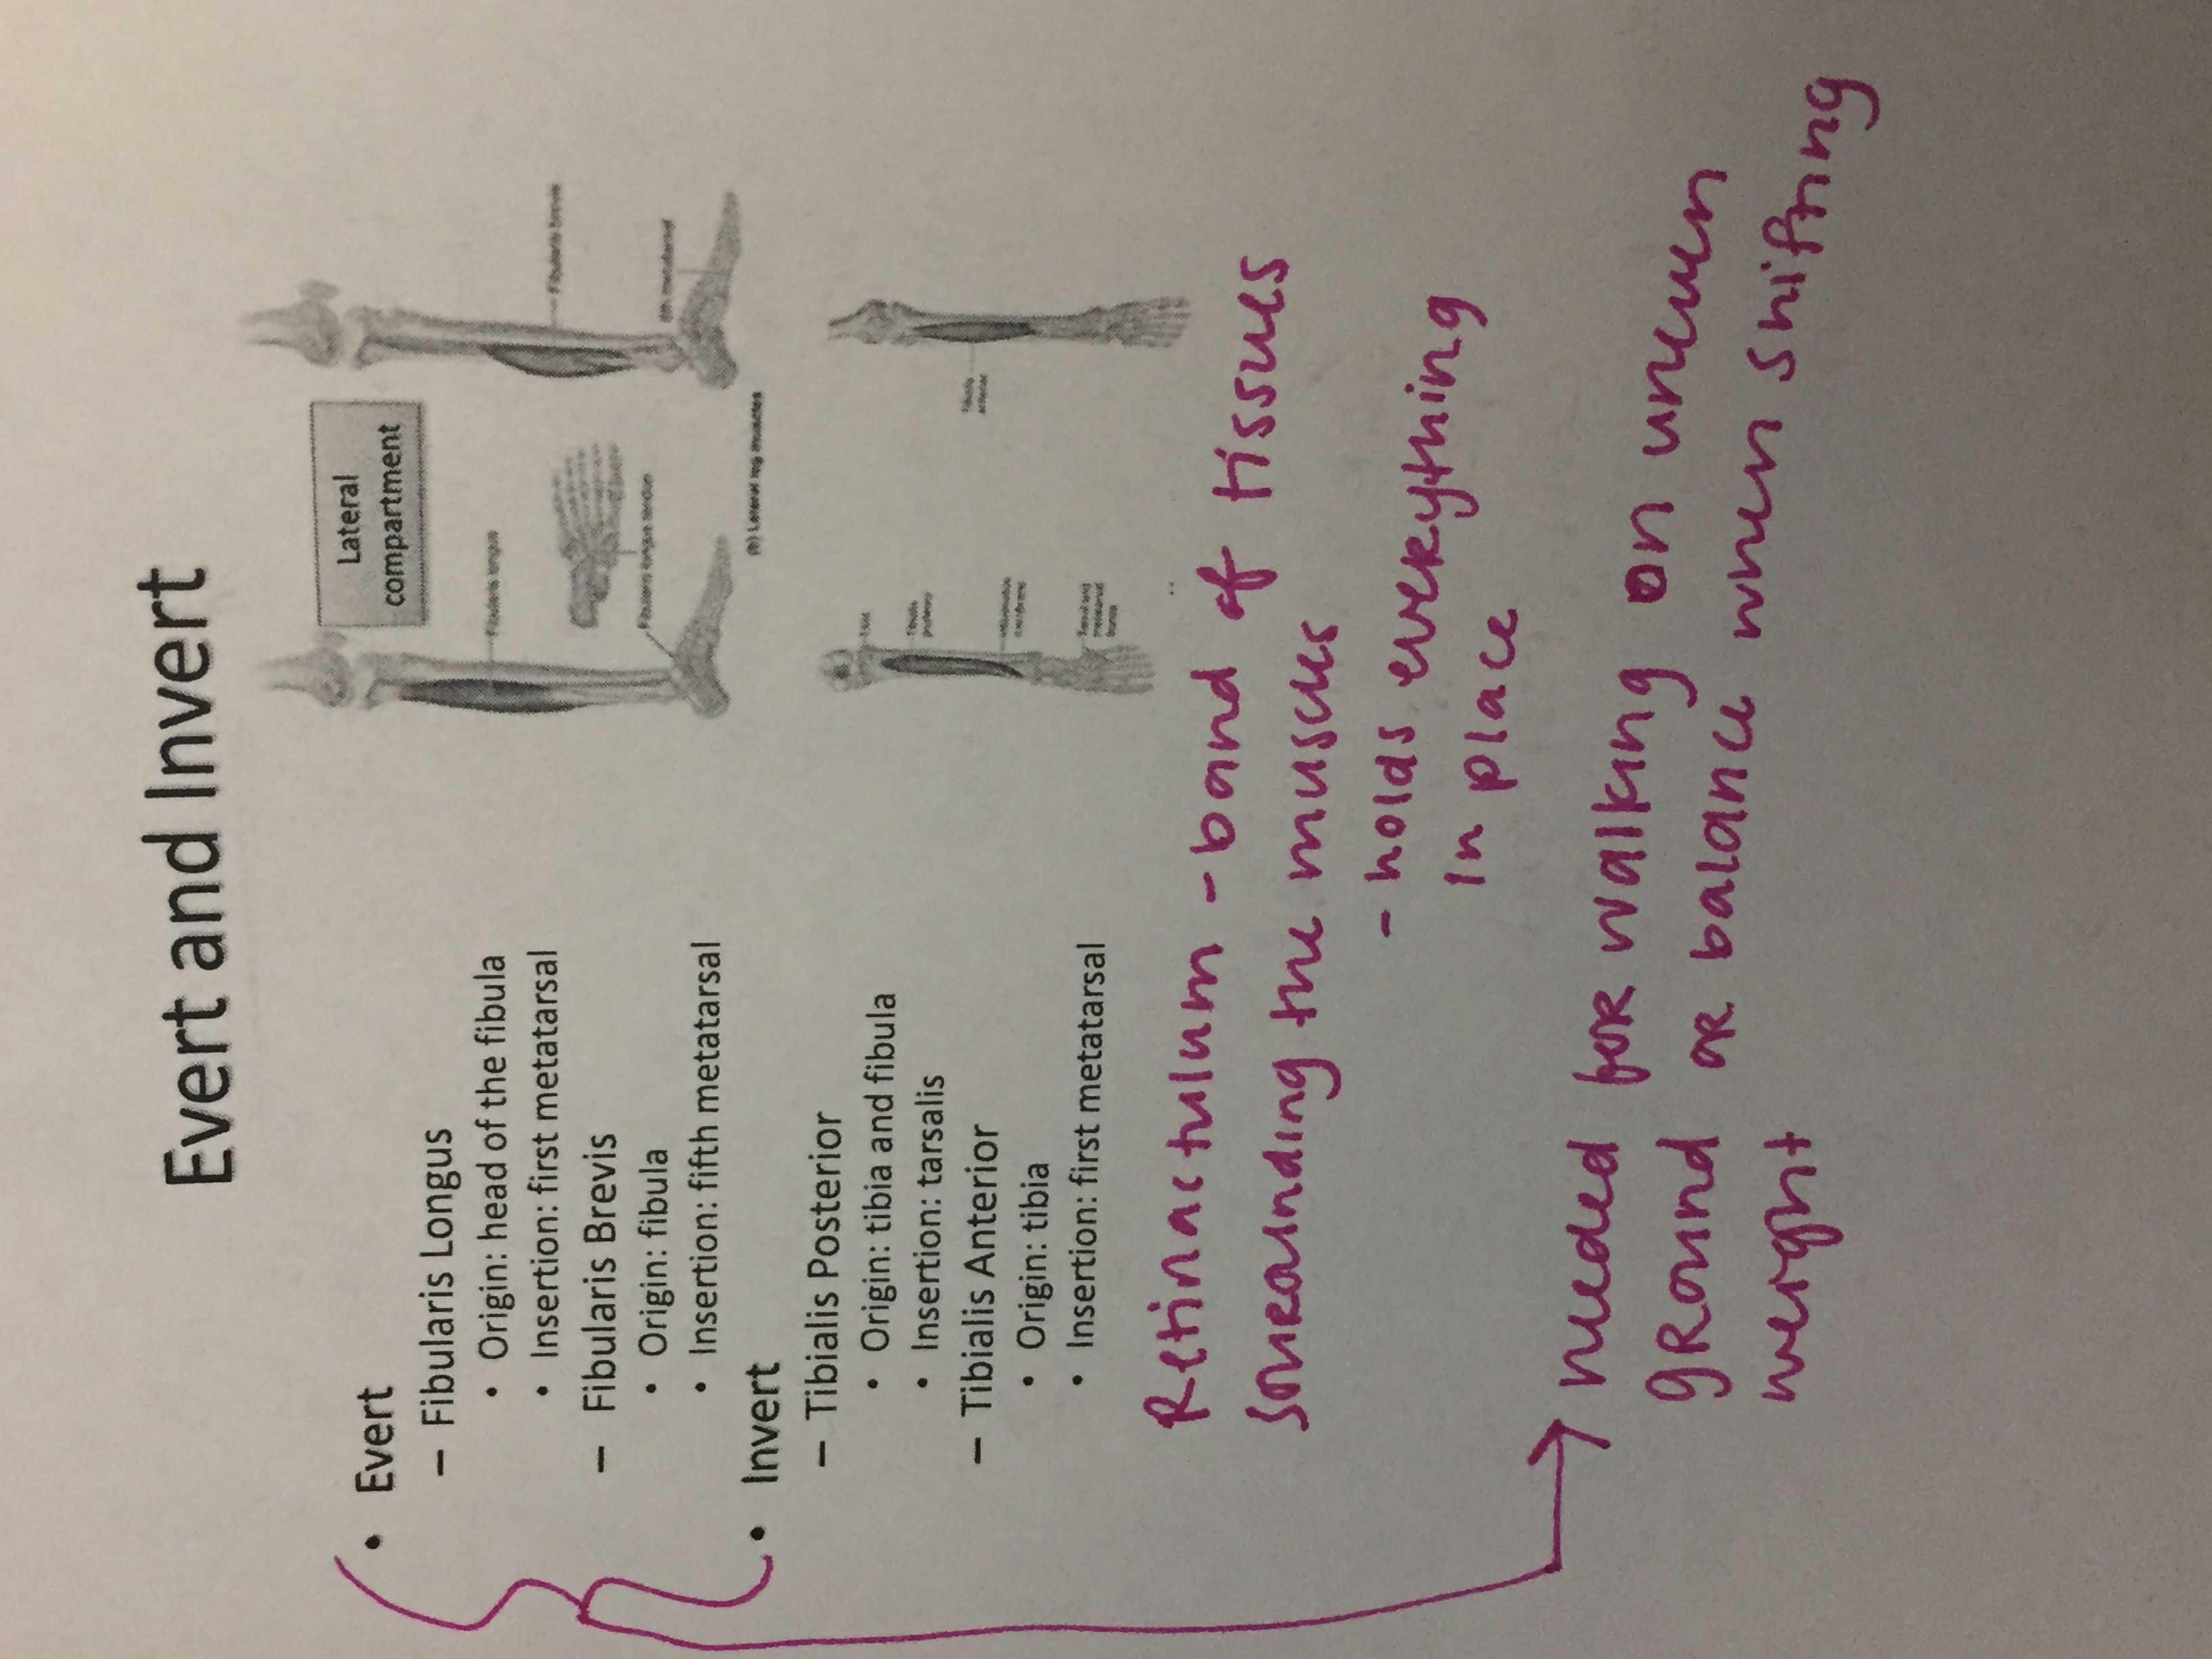 Evert and Invert
• Evert
– Fibularis Longus
• Origin: head of the fibula
• Insertion: first metatarsal
– Fibularis Brevis
• Origin: fibula
• Insertion: fifth metatarsal
• Invert
– Tibialis Posterior
• Origin: tibia and fibula
• Insertion: tarsalis
– Tibialis Anterior
• Origin: tibia
• Insertion: first metatarsal
Lateral
compartment
Fibularis longus
Fibularis brevis
Fibularis longus tendon
5th metatarsal
(b) Lateral leg muscles
Retinactulum - band of tissues
surrounding the muscles
- holds everything
in place
needed for walking on uneven
ground or balance when shifting
weight